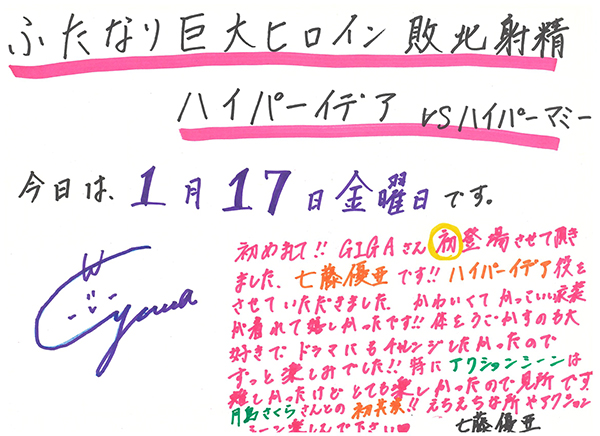 ふたなり巨大ヒロイン敗北射精
ハイパーイデア VSハイパーマミー
今日は、1月17日金曜日です。
初めまして!! GIGAさん初登場させて頂き
ました、七藤優亜です!! ハイパーイデア役を
させていただきました。かわいくてかっこいい衣装
が着れて嬉しかったです!! 体をうごかすのも大
好きで ドラマにもチャレンジしたかったので
ずっと楽しみでした!! 特にアクションシーンは
難しかったけどとても楽しかったので見所です
月島さくらさんとの初共演!! えちえちな所やアクション
シーン楽しんで下さい♥
七藤優亜